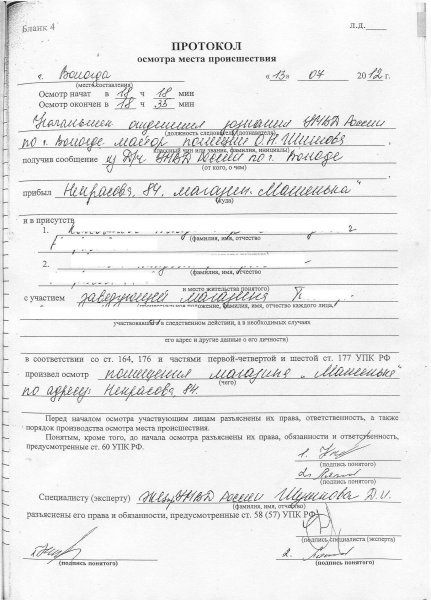 Бланк 4
Л.Д.____
ПРОТОКОЛ
осмотра места происшествия
г. Вологда «13» 07 2012 г.
(место составления)
Осмотр начат в 18 ч 18 мин
Осмотр окончен в 18 ч 35 мин
Начальник отделения дознания УМВД России
(должность следователя (дознавателя)
по г. Вологде майор полиции О.Н. Шитова
классный чин или звание, фамилия, инициалы)
получив сообщение из ДЧ УМВД России по г. Вологде
(от кого, о чем)
прибыл Некрасова, 84, магазин „Машенька"
(куда)
и в присутствии
1.
(фамилия, имя, отчество
2.
(фамилия, имя, отчество
и место жительства понятого)
с участием заведующей магазина
фамилия, имя, отчество каждого лица,
участвовавшего в следственном действии, а в необходимых случаях
его адрес и другие данные о его личности)
в соответствии со ст. 164, 176 и частями первой-четвертой и шестой ст. 177 УПК РФ
произвел осмотр помещения магазина „Машенька"
(чего)
по адресу: Некрасова 84.
Перед началом осмотра участвующим лицам разъяснены их права, ответственность, а также
порядок производства осмотра места происшествия.
Понятым, кроме того, до начала осмотра разъяснены их права, обязанности и ответственность,
предусмотренные ст. 60 УПК РФ.
1.
(подпись понятого)
2.
(подпись понятого)
Специалисту (эксперту) УМВД России
(фамилия, имя, отчество)
разъяснены его права и обязанности, предусмотренные ст. 58 (57) УПК РФ
(подпись специалиста (эксперта)
2.
(подпись понятого) (подпись понятого)